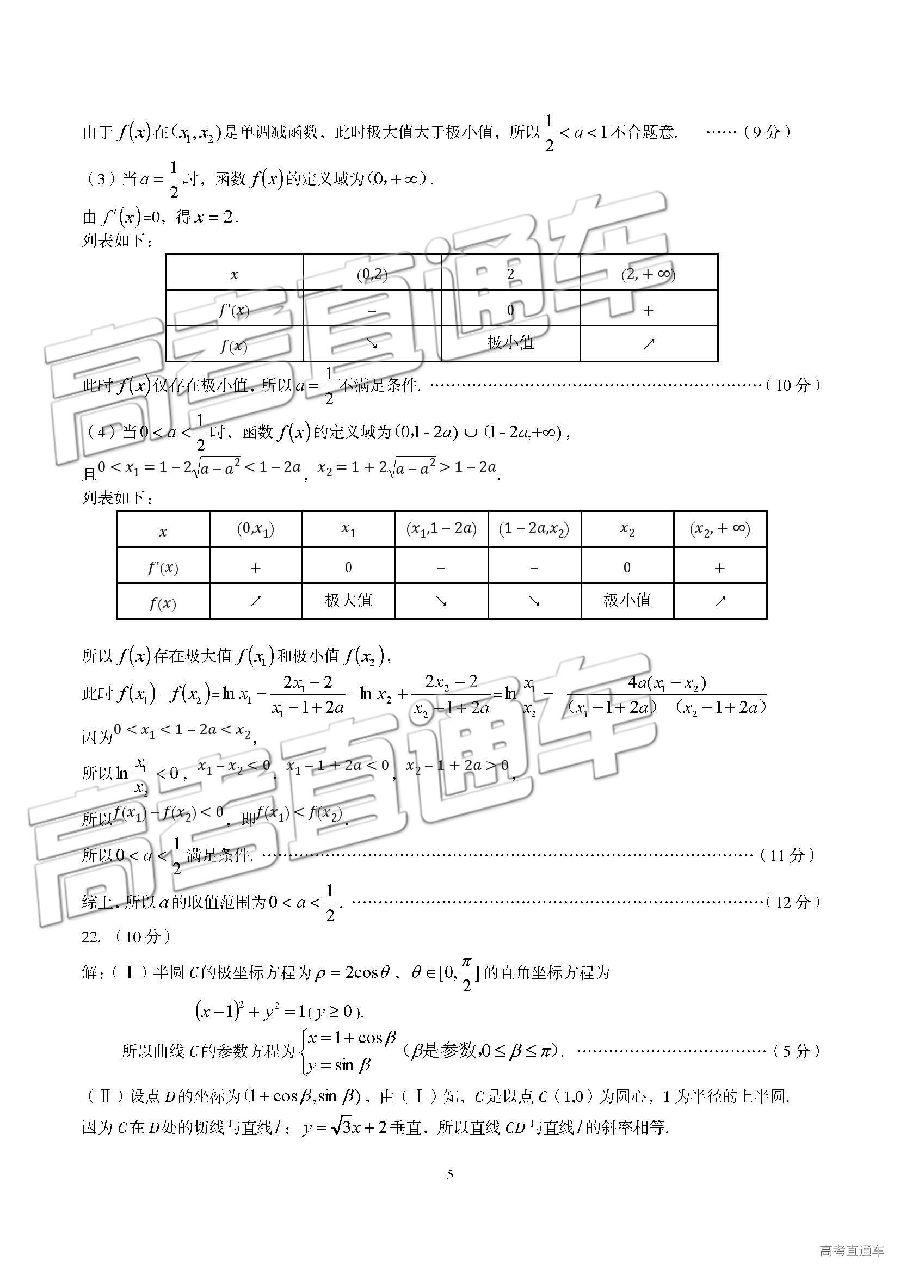 由于 f(x)在(x₁,x₂)是单调减函数，此时极大值大于极小值，所以 1/2 < a < 1不合题意. ……（9 分）
（3）当a = 1/2 时，函数 f(x)的定义域为(0,+∞).
由 f′(x)=0，得 x = 2.
列表如下：
x (0,2) 2 (2,+∞)
f′(x) − 0 +
f(x) ↘ 极小值 ↗
此时 f(x)仅存在极小值，所以a = 1/2 不满足条件. ………………………………（10 分）
（4）当0 < a < 1/2 时，函数 f(x)的定义域为(0,1-2a)∪(1-2a,+∞)，
且0 < x₁ = 1 − 2√(a − a²) < 1 − 2a，x₂ = 1 + 2√(a − a²) > 1 − 2a.
列表如下：
x (0,x₁) x₁ (x₁,1 − 2a) (1 − 2a,x₂) x₂ (x₂,+∞)
f′(x) + 0 − − 0 +
f(x) ↗ 极大值 ↘ ↘ 极小值 ↗
所以 f(x)存在极大值 f(x₁)和极小值 f(x₂)，
此时 f(x₁) f(x₂)=ln x₁ − (2x₁ − 2)/(x₁ − 1 + 2a) ln x₂ + (2x₂ − 2)/(x₂ − 1 + 2a) = ln x₁/x₂ − 4a(x₁ − x₂)/（x₁ − 1 + 2a）（x₂ − 1 + 2a）
因为0 < x₁ < 1 − 2a < x₂，
所以 ln x₁/x₂ < 0，x₁ − x₂ < 0，x₁ − 1 + 2a < 0，x₂ − 1 + 2a > 0，
所以f(x₁) − f(x₂) < 0，即f(x₁) < f(x₂).
所以0 < a < 1/2 满足条件. ………………………………（11 分）
综上，所以a的取值范围为0 < a < 1/2. ………………………………（12 分）
22.（10 分）
解：（Ⅰ）半圆 C的极坐标方程为ρ = 2cosθ，θ∈[0, π/2]的直角坐标方程为
(x−1)² + y² = 1( y ≥ 0 ).
所以曲线 C的参数方程为{x = 1 + cosβ y = sinβ（β是参数,0 ≤ β ≤ π）. ……………………（5 分）
（Ⅱ）设点 D的坐标为(1 + cosβ,sinβ)，由（Ⅰ）知，C是以点 C（1,0）为圆心，1 为半径的上半圆.
因为 C在 D处的切线与直线l：y = √3x + 2 垂直，所以直线 CD 与直线l的斜率相等.
5
高考直通车
高考直通车
高考直通车